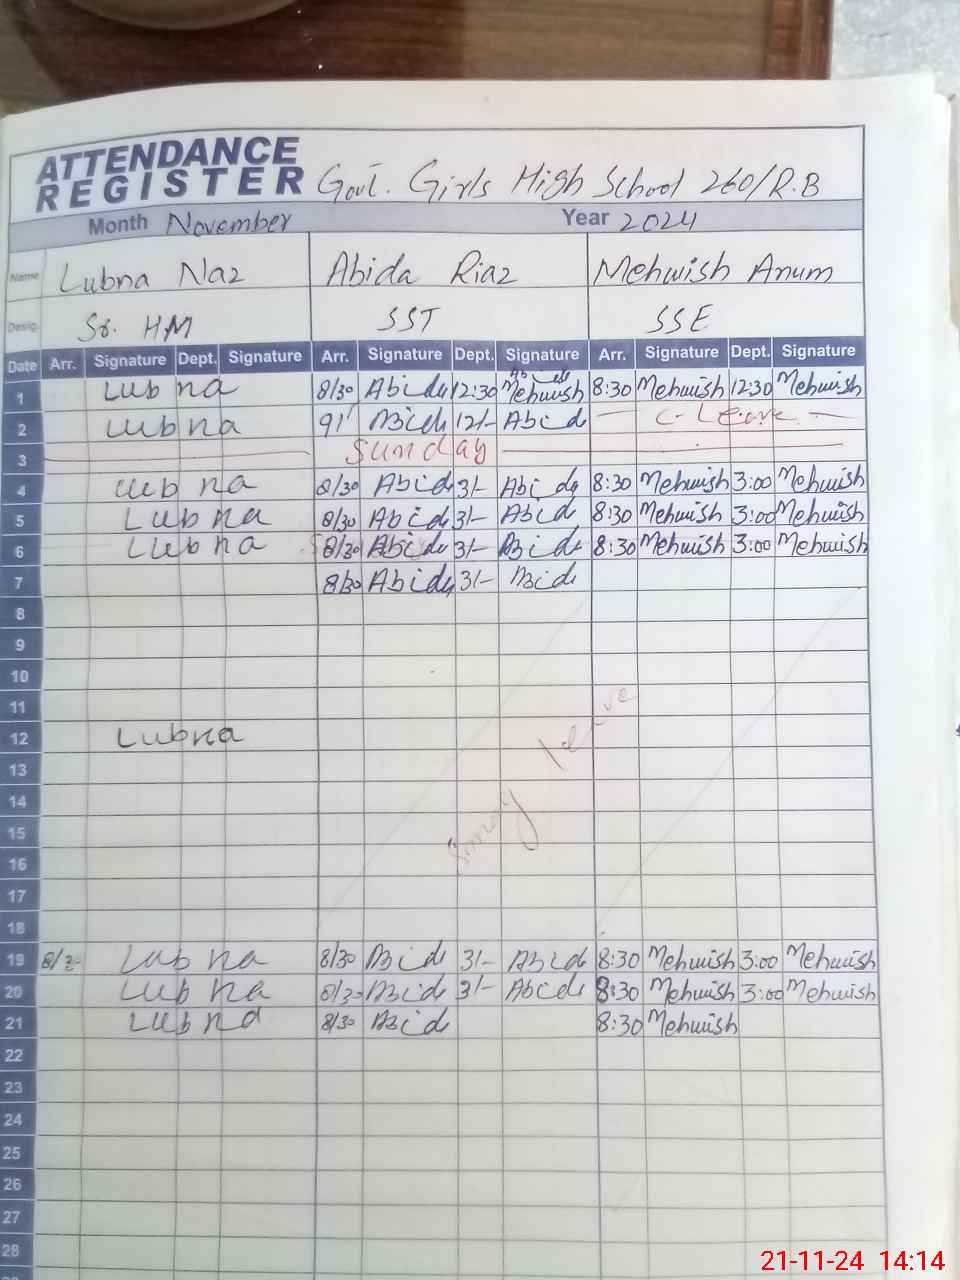 ATTENDANCE
REGISTER Govt. Girls High School 260/R.B
Month November Year 2024
Name Lubna Naz Abida Riaz Mehwish Anum
Desig. Sr. HM SST SSE
Date Arr. Signature Dept. Signature Arr. Signature Dept. Signature Arr. Signature Dept. Signature
1 Lubna 8/30 Abida 12:30 Mehwish 8:30 Mehwish 12:30 Mehwish
2 Lubna 91' Abida 12/- Abida C-Leave
3 Sunday
4 Lubna 8/30 Abida 3/- Abida 8:30 Mehwish 3:00 Mehwish
5 Lubna 8/30 Abida 3/- Abida 8:30 Mehwish 3:00 Mehwish
6 Lubna 8/30 Abida 3/- Abida 8:30 Mehwish 3:00 Mehwish
7 8/30 Abida 3/- Abida
8
9
10
11
12 Lubna
13
14
15
16
17
18
19 Lubna 8/30 Abida 3/- Abida 8:30 Mehwish 3:00 Mehwish
20 Lubna 8/30 Abida 3/- Abida 8:30 Mehwish 3:00 Mehwish
21 Lubna 8/30 Abida 8:30 Mehwish
22
23
24
25
26
27
28
21-11-24 14:14